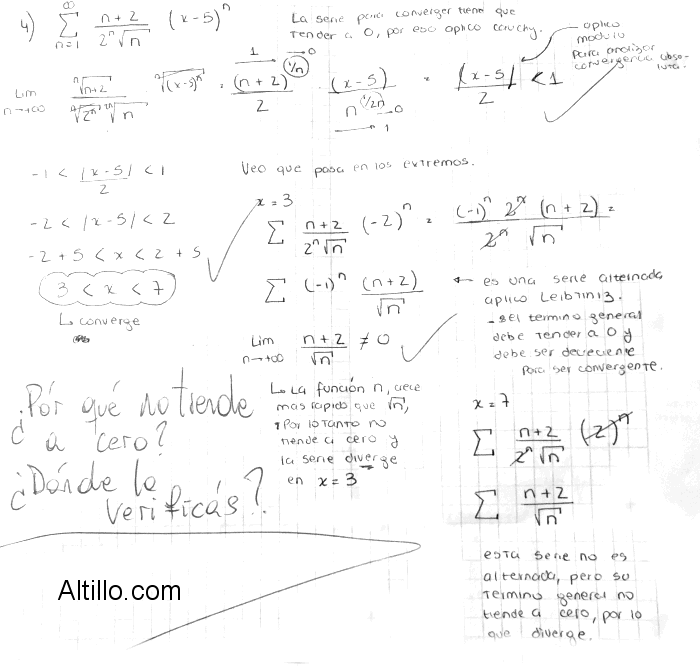 4) ∞ Σ n=1 n+2 / 2ⁿ √n (x-5)ⁿ
La serie para converger tiene que
tender a 0, por eso aplico Cauchy.
aplico
modulo
para analizar
convergencia abso-
luta.
Lim n→+∞ ⁿ√n+2 / ⁿ√2ⁿ ⁿ√√n ⁿ√(x-5)ⁿ = (n+2)^(1/n) / 2 (x-5) / n^(1/2n) = |x-5| / 2 < 1
1 → 0
→ 0
→ 1
-1 < |x-5| / 2 < 1
-2 < |x-5| < 2
-2+5 < x < 2+5
3 < x < 7
↳ converge
Veo que pasa en los extremos.
x = 3
Σ n+2 / 2ⁿ √n (-2)ⁿ = (-1)ⁿ 2ⁿ (n+2) / 2ⁿ √n =
Σ (-1)ⁿ (n+2) / √n
← es una serie alternada
aplico Leibniniz.
- El termino general
debe tender a 0 y
debe ser dececiente
para ser convergente.
Lim n→+∞ n+2 / √n ≠ 0
↳ La función n, crece
mas rapido que √n,
Por lo tanto no
tiende a cero y
la serie diverge
en x = 3
¿Por qué no tiende
a cero?
¿Dónde lo
verificás?
x = 7
Σ n+2 / 2ⁿ √n (2)ⁿ
Σ n+2 / √n
esta serie no es
alternada, pero su
termino general no
tiende a cero, por lo
que diverge.
Altillo.com